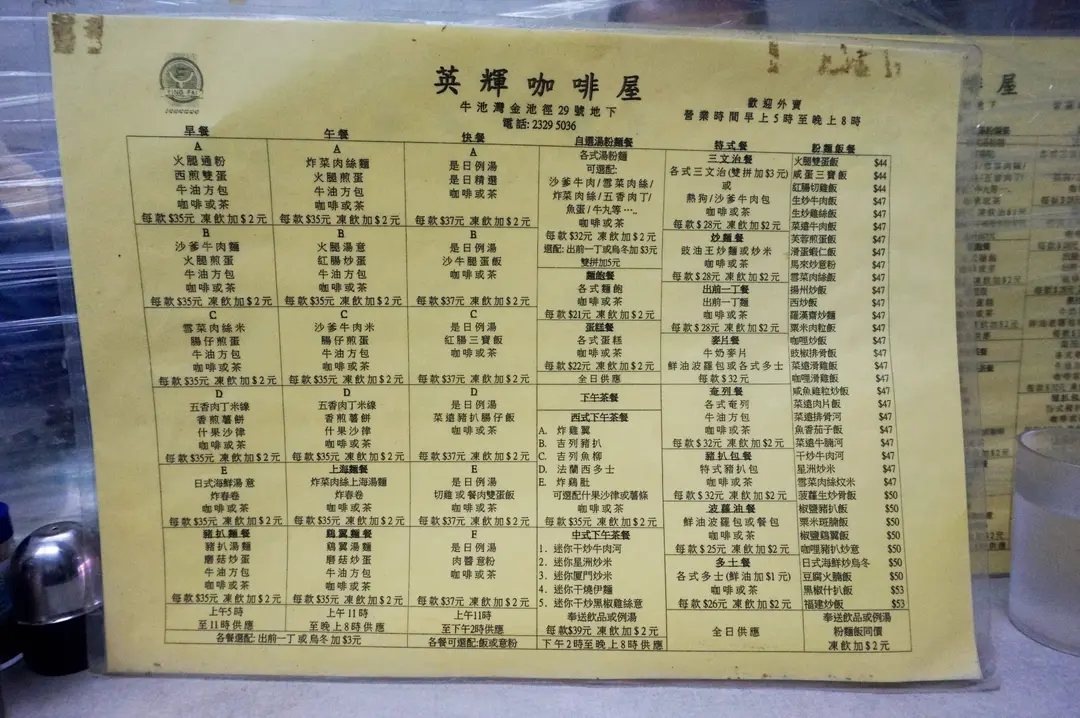 英輝咖啡屋
牛池灣金池徑29號地下
電話: 2329 5036
歡迎外賣
營業時間早上5時至晚上8時
早餐
A
火腿通粉
西煎雙蛋
牛油方包
咖啡或茶
每款$35元 凍飲加$2元
B
沙爹牛肉麵
火腿煎蛋
牛油方包
咖啡或茶
每款$35元 凍飲加$2元
C
雪菜肉絲米
腸仔煎蛋
牛油方包
咖啡或茶
每款$35元 凍飲加$2元
D
五香肉丁米線
香煎薯餅
什果沙律
咖啡或茶
每款$35元 凍飲加$2元
E
日式海鮮湯意
炸春卷
咖啡或茶
每款$35元 凍飲加$2元
豬扒麵餐
豬扒湯麵
蘑菇炒蛋
牛油方包
咖啡或茶
每款$35元 凍飲加$2元
上午5時
至11時供應
午餐
A
炸菜肉絲麵
火腿煎蛋
牛油方包
咖啡或茶
每款$35元 凍飲加$2元
B
火腿湯意
紅腸炒蛋
牛油方包
咖啡或茶
每款$35元 凍飲加$2元
C
沙爹牛肉米
腸仔煎蛋
牛油方包
咖啡或茶
每款$35元 凍飲加$2元
D
五香肉丁米線
香煎薯餅
什果沙律
咖啡或茶
每款$35元 凍飲加$2元
上海麵餐
炸菜肉絲上海湯麵
炸春卷
咖啡或茶
每款$35元 凍飲加$2元
鷄翼麵餐
鷄翼湯麵
蘑菇炒蛋
牛油方包
咖啡或茶
每款$35元 凍飲加$2元
上午11時
至晚上8時供應
各餐選配: 出前一丁或烏冬加$3元
快餐
A
是日例湯
是日精選
咖啡或茶
每款$37元 凍飲加$2元
B
是日例湯
沙牛腿蛋飯
咖啡或茶
每款$37元 凍飲加$2元
C
是日例湯
紅腸三寶飯
咖啡或茶
每款$37元 凍飲加$2元
D
是日例湯
菜遠豬扒腸仔飯
咖啡或茶
每款$37元 凍飲加$2元
E
是日例湯
切雞或餐肉雙蛋飯
咖啡或茶
每款$37元 凍飲加$2元
F
是日例湯
肉醬意粉
咖啡或茶
每款$37元 凍飲加$2元
上午11時
至下午2時供應
各餐可選配:飯或意粉
自選湯粉麵餐
各式湯粉麵
可選配:
沙爹牛肉/雪菜肉絲/
炸菜肉絲/五香肉丁/
魚蛋/牛丸等…..
咖啡或茶
每款$32元 凍飲加$2元
選配: 出前一丁或烏冬加$3元
雙拼加5元
麵飽餐
各式麵飽
咖啡或茶
每款$21元 凍飲加$2元
蛋糕餐
各式蛋糕
咖啡或茶
每款$22元 凍飲加$2元
全日供應
下午茶餐
西式下午茶餐
A. 炸雞翼
B. 吉列豬扒
C. 吉列魚柳
D. 法蘭西多士
E. 炸鷄肶
可選配什果沙律或薯條
咖啡或茶
每款$35元 凍飲加$2元
中式下午茶餐
1. 迷你干炒牛肉河
2. 迷你星洲炒米
3. 迷你廈門炒米
4. 迷你干燒伊麵
5. 迷你干炒黑椒雞絲意
奉送飲品或例湯
每款$39元 凍飲加$2元
下午2時至晚上8時供應
特式餐
三文治餐
各式三文治(雙拼加$3元)
或
熱狗/沙爹牛肉包
咖啡或茶
每款$28元 凍飲加$2元
炒麵餐
豉油王炒麵或炒米
咖啡或茶
每款$28元 凍飲加$2元
出前一丁餐
出前一丁麵
咖啡或茶
每款$28元 凍飲加$2元
麥片餐
牛奶麥片
鮮油波羅包或各式多士
每款$32元
奄列餐
各式奄列
牛油方包
咖啡或茶
每款$32元 凍飲加$2元
豬扒包餐
特式豬扒包
咖啡或茶
每款$32元 凍飲加$2元
波蘿油餐
鮮油波蘿包或餐包
咖啡或茶
每款$25元 凍飲加$2元
多士餐
各式多士(鮮油加$1元)
咖啡或茶
每款$26元 凍飲加$2元
全日供應
粉麵飯餐
火腿雙蛋飯 $44
咸蛋三寶飯 $44
紅腸切雞飯 $44
生炒牛肉飯 $47
生炒雞絲飯 $47
菜遠牛肉飯 $47
芙蓉煎蛋飯 $47
滑蛋蝦仁飯 $47
馬來炒意粉 $47
雪菜肉絲飯 $47
揚州炒飯 $47
西炒飯 $47
羅漢齋炒麵 $47
粟米肉粒飯 $47
咖哩炒飯 $47
豉椒排骨飯 $47
菜遠滑雞飯 $47
咖哩滑雞飯 $47
咸魚雞粒炒飯 $47
菜遠肉片飯 $47
菜遠排骨河 $47
魚香茄子飯 $47
菜遠牛腩河 $47
干炒牛肉河 $47
星洲炒米 $47
雪菜肉絲炆米 $47
菠蘿生炒骨飯 $50
椒鹽豬扒飯 $50
粟米斑腩飯 $50
椒鹽鷄翼飯 $50
咖哩豬扒炒意 $50
日式海鮮炒烏冬 $50
豆腐火腩飯 $50
黑椒什扒飯 $53
福建炒飯 $53
奉送飲品或例湯
粉麵飯同價
凍飲加$2元